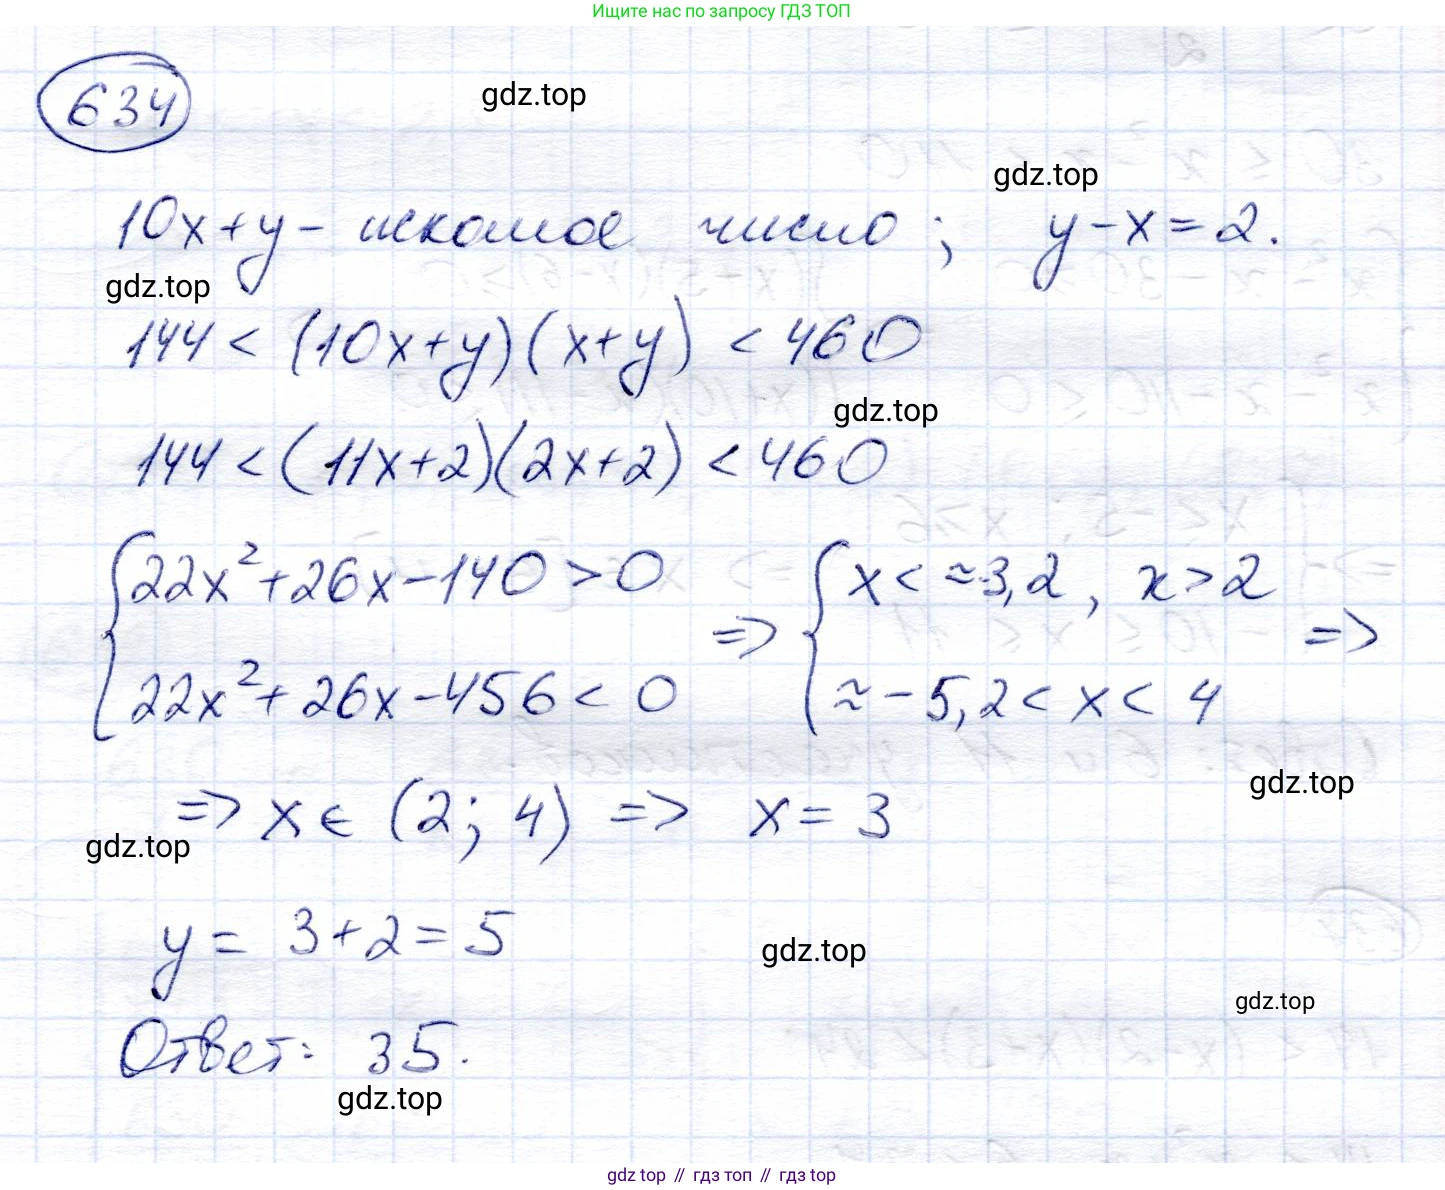 Ищите нас по запросу ГДЗ ТОП
634
gdz.top
gdz.top
10x+y - искомое число; y-x=2.
gdz.top
144 < (10x+y)(x+y) < 460
gdz.top
144 < (11x+2)(2x+2) < 460
{22x²+26x-140>0 => {x<≈-3,2, x>2 =>
22x²+26x-456<0 ≈-5,2<x<4
gdz.top
=> x∈(2; 4) => x=3
gdz.top
y = 3+2=5
gdz.top
gdz.top
Ответ: 35.
gdz.top
gdz top // гдз топ // гдз top